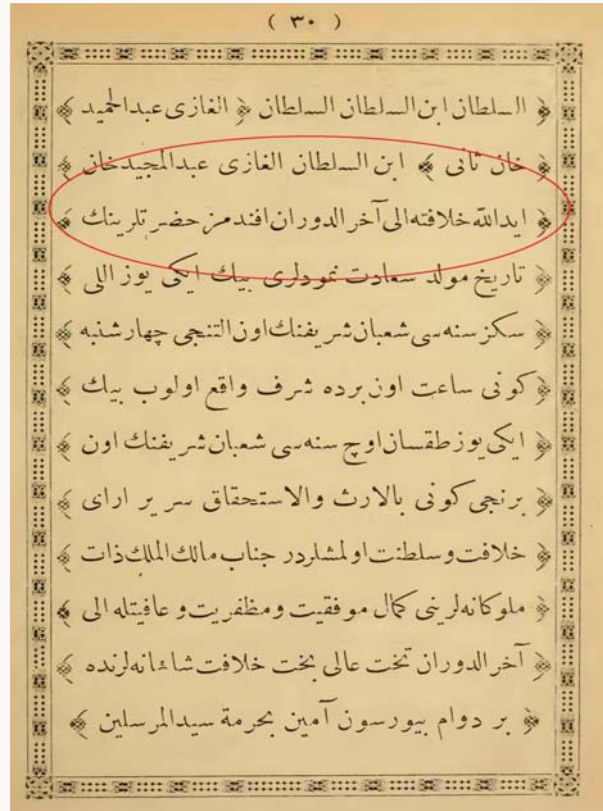 ( ٣٠ )
﴿ السلطان ابن السلطان السلطان ﴿ الغازى عبدالحميد ﴾
﴿ خان ثانى ﴾ ابن السلطان الغازى عبدالمجيدخان ﴾
﴿ ايدالله خلافته الى آخر الدوران افندمز حضرتلرينك ﴾
﴿ تاريخ مولد سعادت نمودلرى بيك ايكى يوز اللى ﴾
﴿ سكز سنه سى شعبان شريفنك اون التنجى چهارشنبه ﴾
﴿ كونى ساعت اون برده شرف واقع اولوب بيك ﴾
﴿ ايكى يوز طقسان اوچ سنه سى شعبان شريفنك اون ﴾
﴿ برنجى كونى بالارث والاستحقاق سرير اراى ﴾
﴿ خلافت وسلطنت اولمشلردر جناب مالك الملك ذات ﴾
﴿ ملوكانه لرينى كمال موفقيت ومظفريت و عافيتله الى ﴾
﴿ آخر الدوران تخت عالى بخت خلافت شاهانه لرنده ﴾
﴿ بر دوام بيورسون آمين بحرمة سيدالمرسلين ﴾